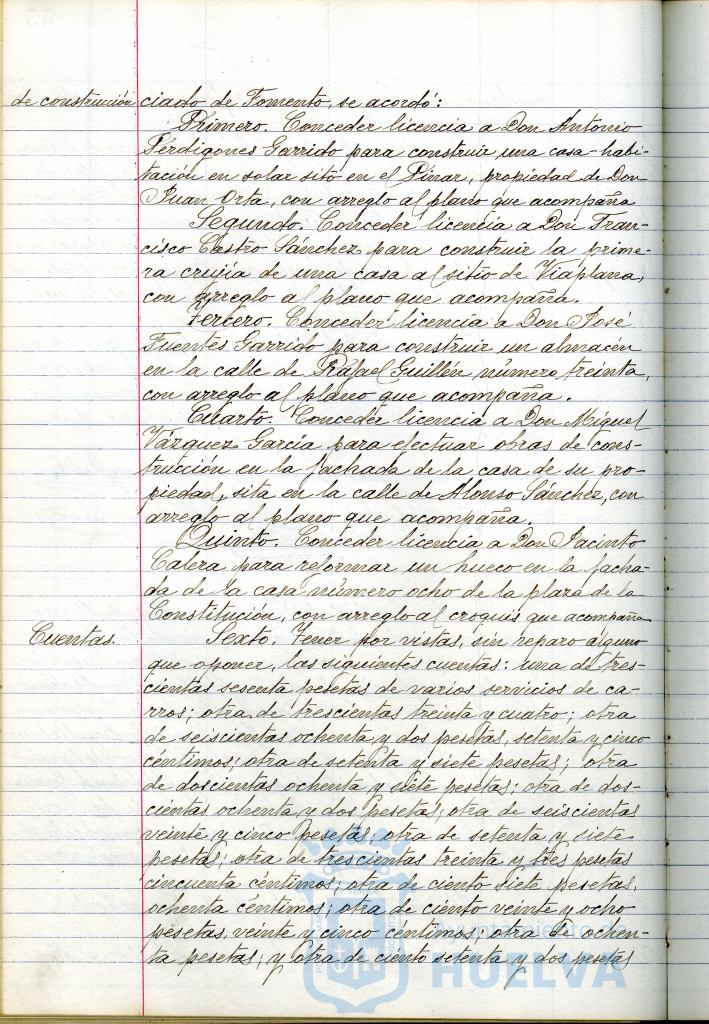 de construcción ciado de Fomento, se acordó:
Primero. Conceder licencia a Don Antonio
Perdigones Garrido para construir una casa-habi-
tación en solar sito en el Pinar, propiedad de Don
Juan Orta, con arreglo al plano que acompaña
Segundo. Conceder licencia a Don Fran-
cisco Castro Sánchez para construir la prime-
ra crujía de una casa al sitio de Viaplana,
con arreglo al plano que acompaña.
Tercero. Conceder licencia a Don José
Fuentes Garrido para construir un almacén
en la calle de Rafael Guillén número treinta,
con arreglo al plano que acompaña.
Cuarto. Conceder licencia a Don Miguel
Vázquez García para efectuar obras de cons-
trucción en la fachada de la casa de su pro-
piedad, sita en la calle de Alonso Sánchez, con
arreglo al plano que acompaña.
Quinto. Conceder licencia a Don Jacinto
Calera para reformar un hueco en la facha-
da de la casa número ocho de la plaza de la
Constitución, con arreglo al croquis que acompaña
Cuentas. Sexto. Tener por vistas, sin reparo alguno
que oponer, las siguientes cuentas: una de tres-
cientas sesenta pesetas de varios servicios de ca-
rros; otra de trescientas treinta y cuatro; otra
de seiscientas ochenta y dos pesetas, setenta y cinco
céntimos; otra de setenta y siete pesetas; otra
de doscientas ochenta y siete pesetas; otra de dos-
cientas ochenta y dos pesetas; otra de seiscientas
veinte y cinco pesetas; otra de setenta y siete
pesetas; otra de trescientas treinta y tres pesetas
cincuenta céntimos; otra de ciento siete pesetas,
ochenta céntimos; otra de ciento veinte y ocho
pesetas, veinte y cinco céntimos; otra de ochen-
ta pesetas; y otra de ciento setenta y dos pesetas
Ayuntamiento de
HUELVA